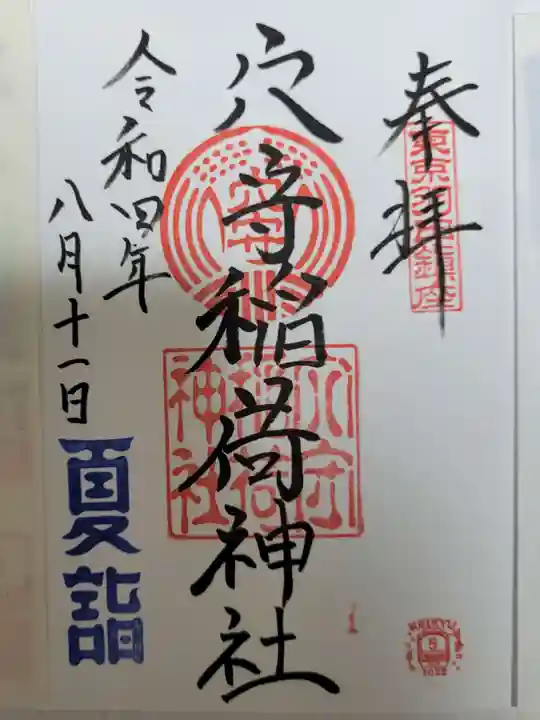 奉拝
東京羽田鎮座
穴守稲荷神社
穴守
稲荷
神社
令和四年
八月十一日
夏詣
KEIKYU